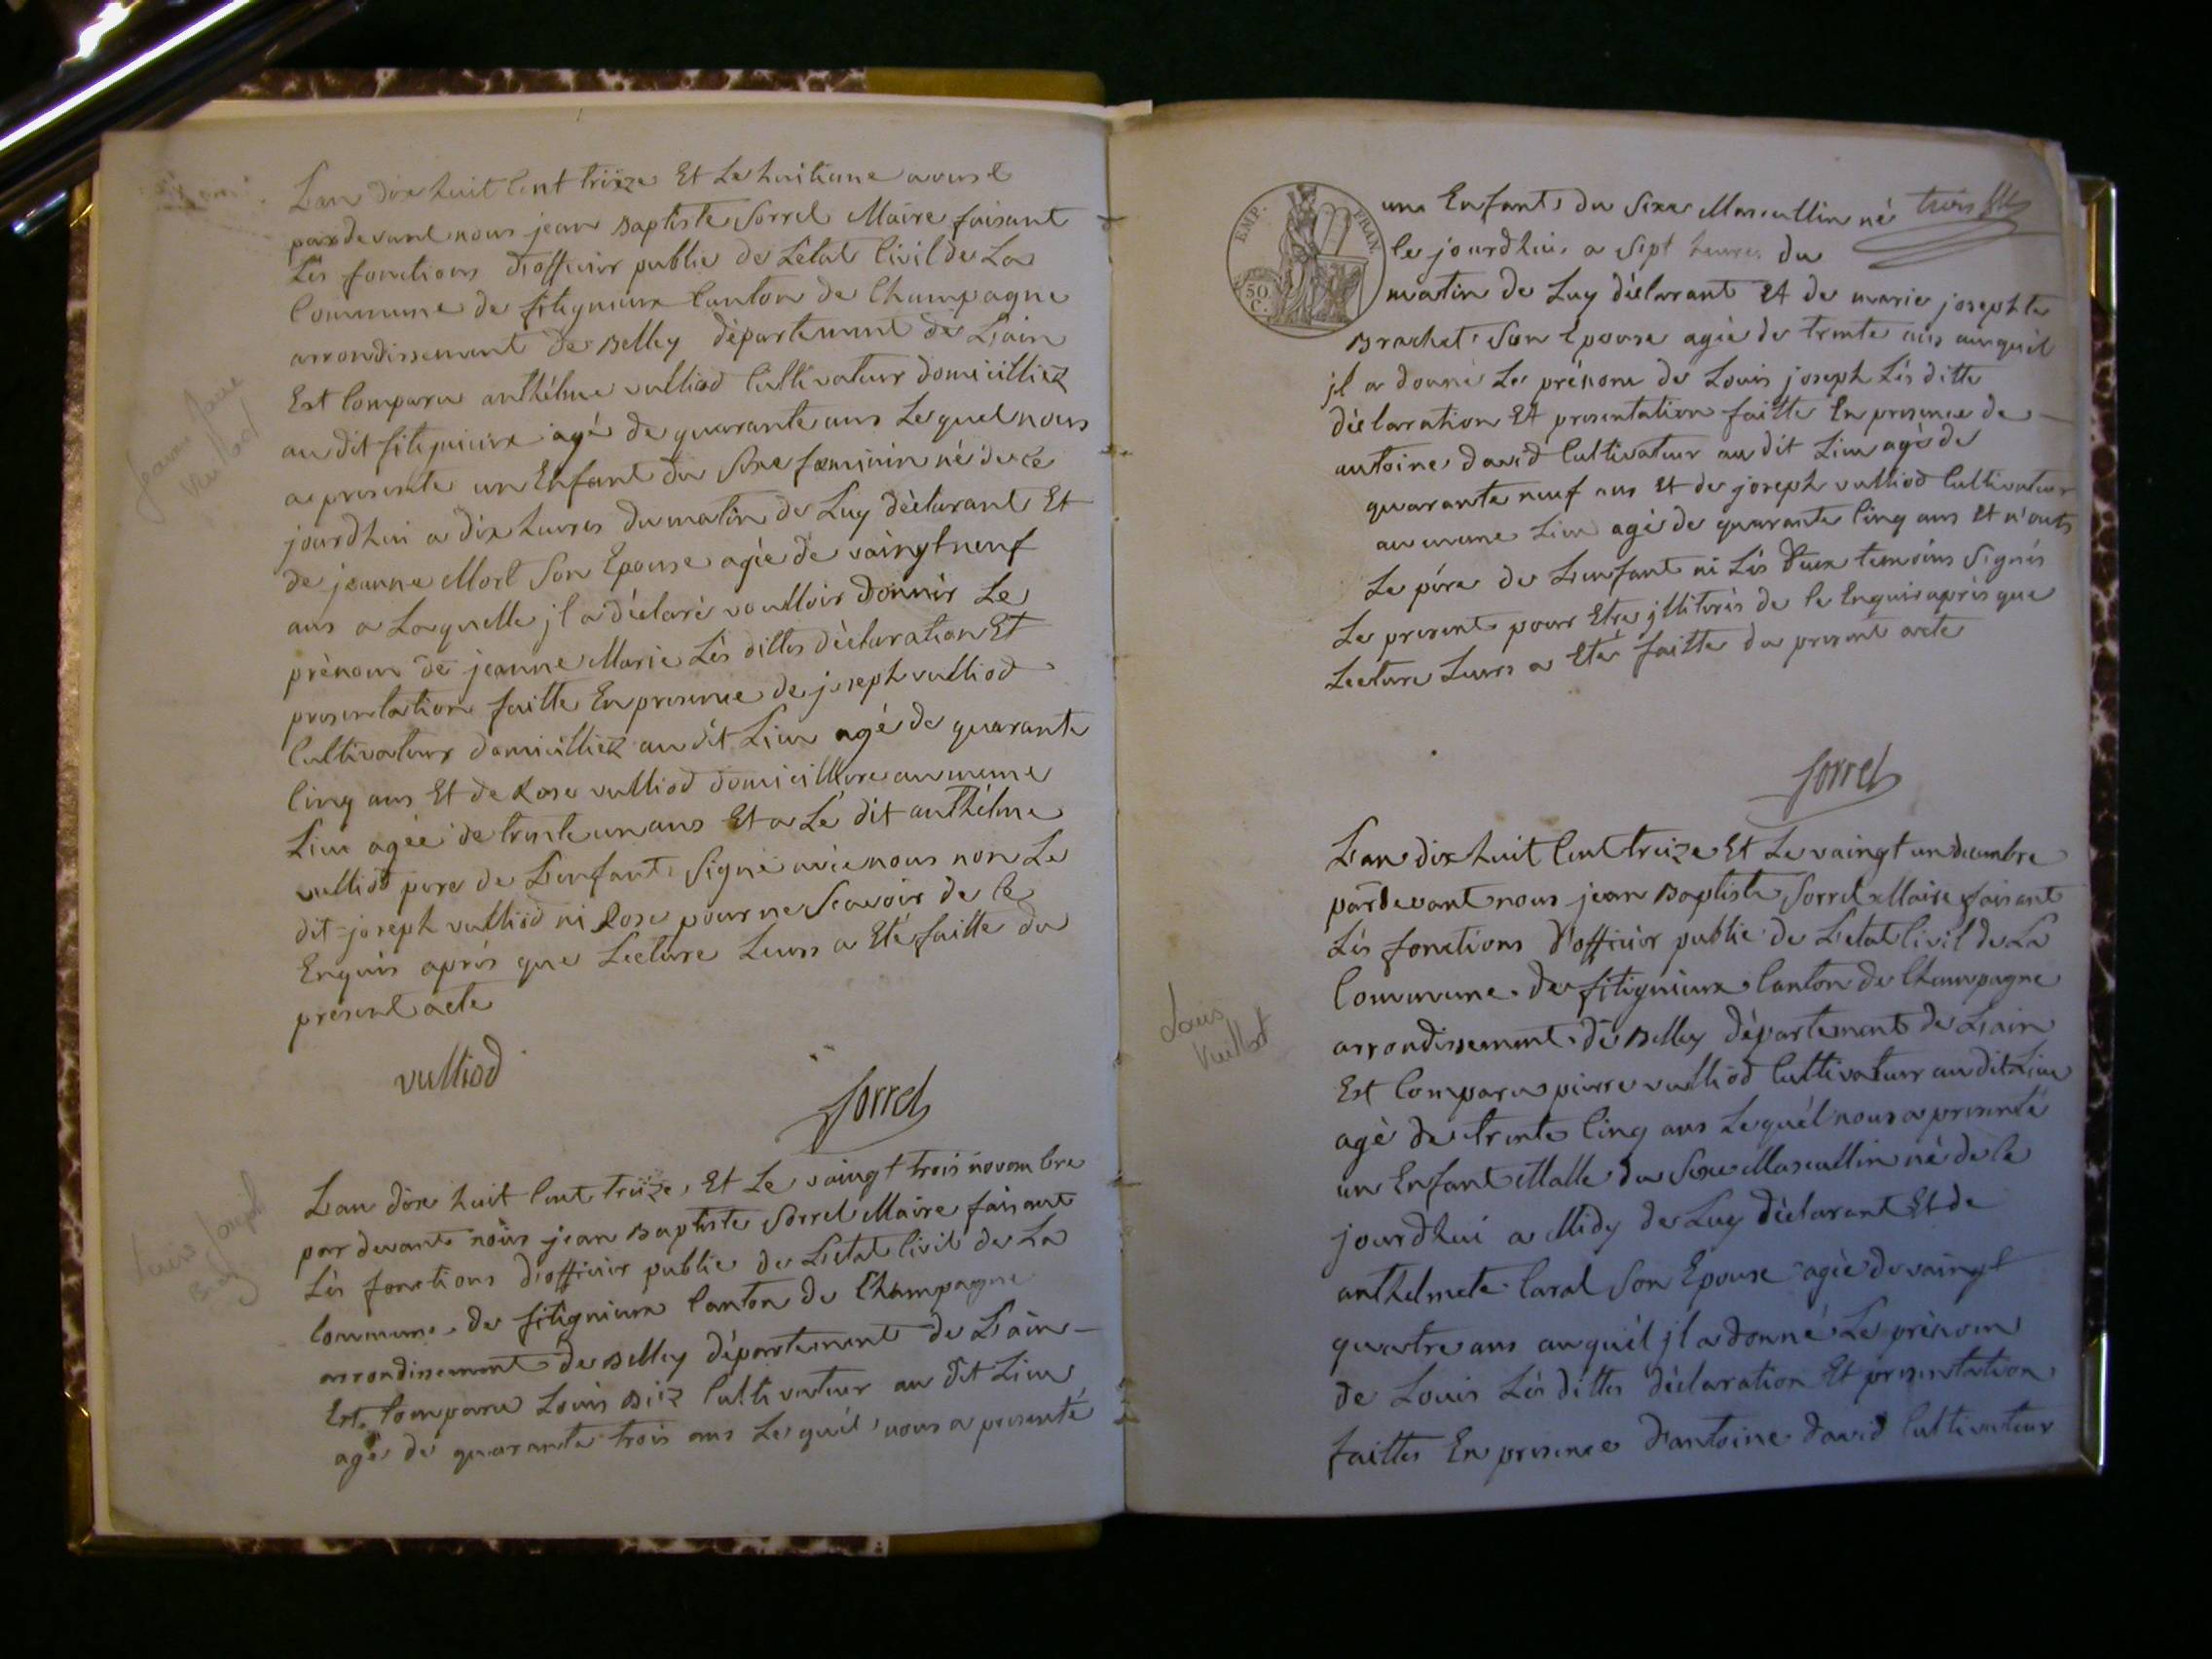 Jeanne
Vulliod
L'an dix huit Cent treize Et Le huitieme aoust
pardevant nous jean Baptiste Sorrel Maire faisant
Lés fonctions d'officier public de L'état Civil de La
Commune de fitignieux Canton de Champagne
arrondissement de Belley département de L'ain
Est Comparu anthélme vulliod Cultivateur domicilliez
au dit fitignieux agé de quarante ans Le quel nous
a presenté un Enfant du Sexe foeminin né de ce
jourdhui a dix heures du matin de Luy déclarant Et
de jeanne Mort Son Epouse agée de vaingt neuf
ans a Laquelle jl a déclaré voulloir donnér Le
prénom de jeanne Marie Lés dittes déclaration Et
presentation faitte En presence de joseph vulliod
Cultivateur domicilliez au dit Lieu agé de quarante
Cinq ans Et de Rose vulliod domicilliere au meme
Lieu agée de trente un ans Et a Lé dit anthélme
vulliod pere de L'enfant Signé avec nous non Le
dit joseph vulliod ni Rose pour ne Scavoir de Ce
Enquis aprés que Lecture Leurs a Eté faitte du
present acte
vulliod
Sorrel
Louis Joseph
L'an dix huit Cent treize Et Le vaingt trois novembre
par devant nous jean Baptiste Sorrel Maire faisant
Lés fonctions d'officier public de L'etat Civil de La
Commune de fitignieux Canton de Champagne
arrondissement de Belley département de L'ain
Est Comparu Louis Biez Cultivateur au dit Lieu
agé de quarante trois ans Le quél nous a presenté
EMP. FRAN.
50.
C.
trois
un Enfant du Sexe Mascullin né
le jourdhui a Sept heures du
matin de Luy déclarant Et de marie josephte
Brachet Son Epouse agée de trente ans auquél
jl a donné Le prénom de Louis joseph Lés ditte
déclaration Et presentation faitte En presence de
antoine david Cultivateur au dit Lieu agé de
quarante neuf ans Et de joseph vulliod Cultivateur
au meme Lieu agé de quarante Cinq ans Et n'onts
Le pére de L'enfant ni Lés deux temoins Signés
Le present pour Etre jlliterés de Ce Enquis aprés que
Lecture Leurs a Eté faitte du present acte
Sorrel
Louis
Vuillod
L'an dix huit Cent treize Et Le vaingt un decembre
pardevant nous jean Baptiste Sorrel Maire faisant
Lés fonctions d'officiér public de L'etat Civil de La
Commune de fitignieux Canton de Champagne
arrondissement de Belley département de L'ain
Est Comparu pierre vulliod Cultivateur au dit Lieu
agé de trente Cinq ans Le quél nous a presenté
un Enfant Malle du Sexe Mascullin né de Ce
jourdhui a Midy de Luy déclarant Et de
anthelmete Caral Son Epouse agée de vaingt
quatre ans auquél jl a donné Le prénom
de Louis Lés dittes déclaration Et presentation
faittes En presence d'antoine david Cultivateur